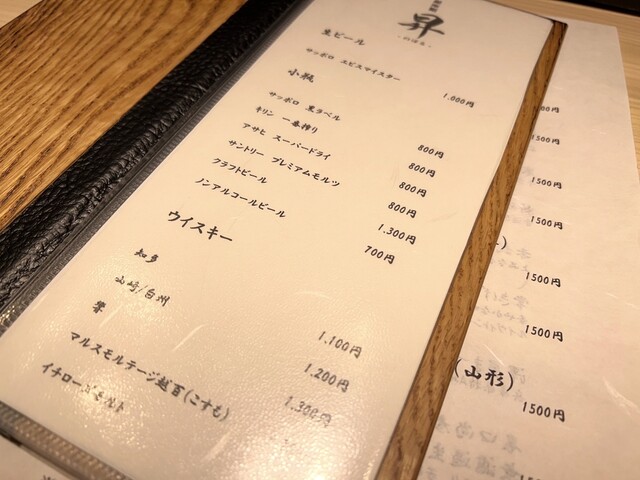 昇
生ビール
サッポロ ヱビスマイスター 1.000円
小瓶
サッポロ 黒ラベル 800円
キリン 一番搾り 800円
アサヒ スーパードライ 800円
サントリー プレミアムモルツ 800円
クラフトビール 1.300円
ノンアルコールビール 700円
ウイスキー
知多 1.100円
山崎/白州 1.200円
響 1.300円
マルスモルテージ越百(こすも)
イチローズモルト
1500円
1500円
1500円
1500円
1500円
(山形)
1500円